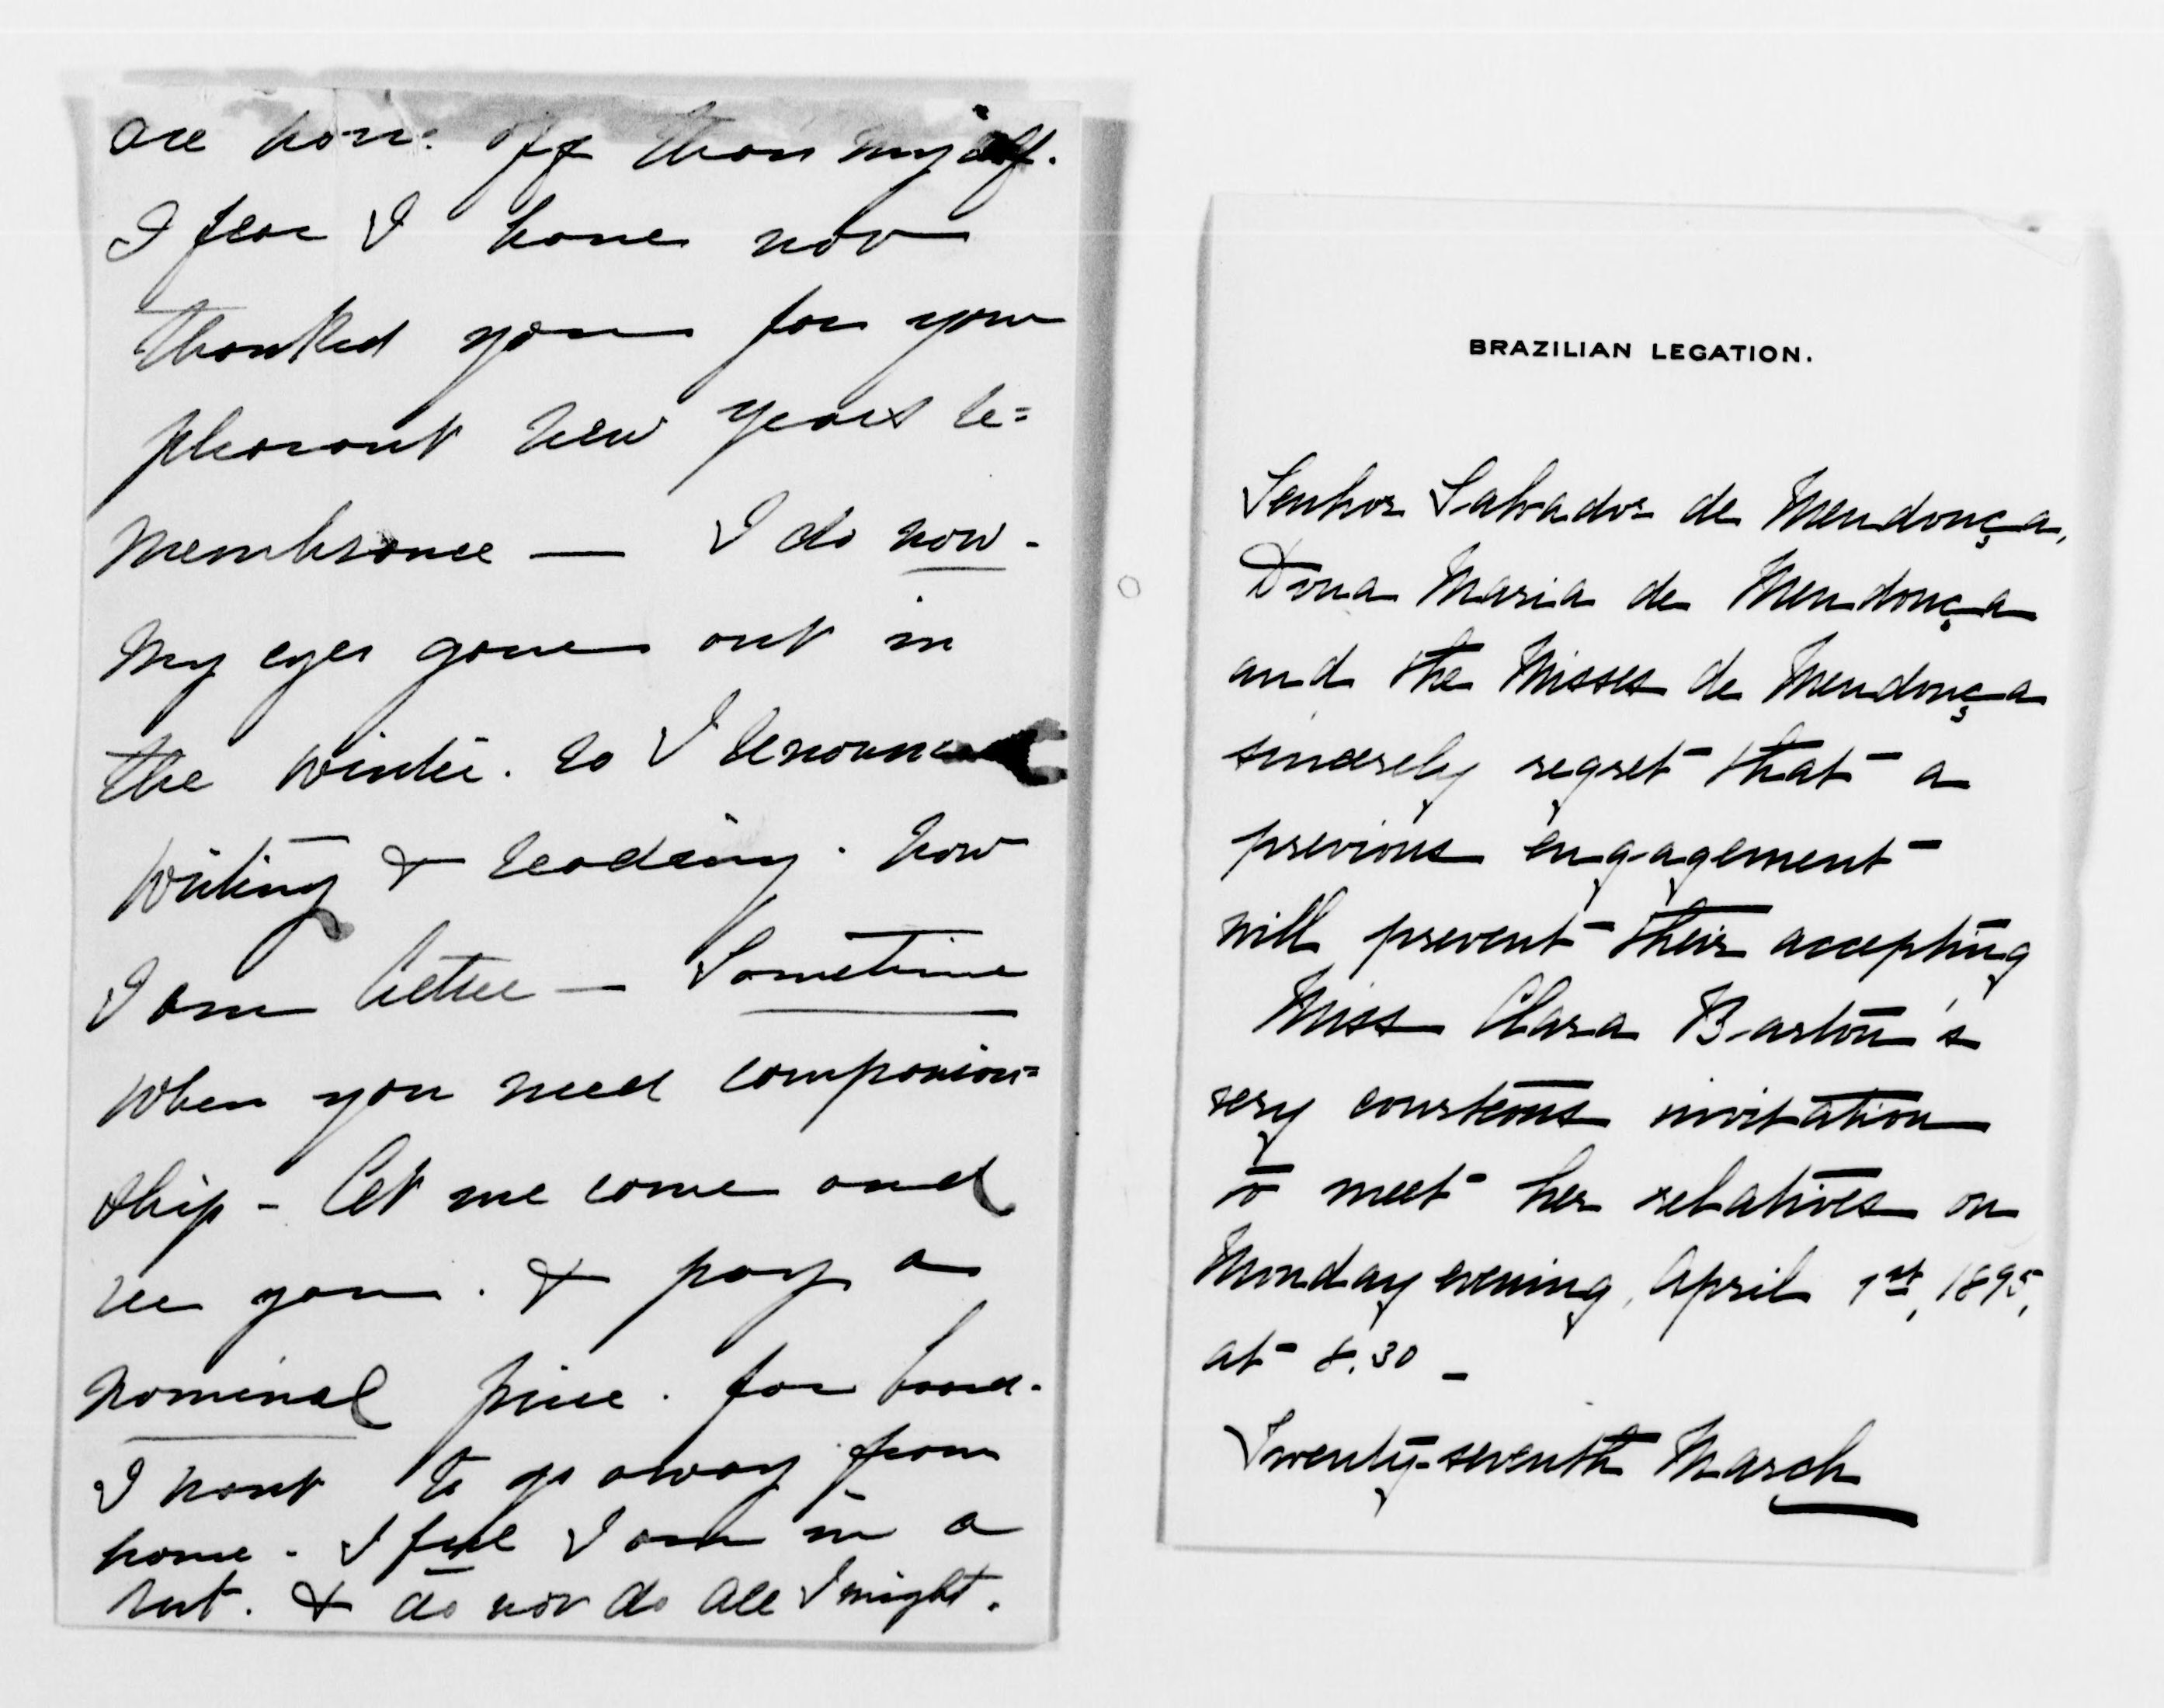 are worse off than myself.
I fear I have not
thanked you for your
pleasant New Years re=
membrance — I do now.
My eyes gave out in
the winter. So I renounced
writing & reading. Now
I am better — Sometime
when you need companion=
ship - let me come and
see you. & pay a
nominal price. for board.
I want to go away from
home. I feel I am in a
rut. & do not do all I might.
BRAZILIAN LEGATION.
Senhor Salvador de Mendonça,
Dona Maria de Mendonça
and the Misses de Mendonça
sincerely regret that a
previous engagement
will prevent their accepting
Miss Clara Barton's
very courteous invitation
to meet her relatives on
Monday evening, April 1st, 1895,
at 8.30 _
Twenty-seventh March